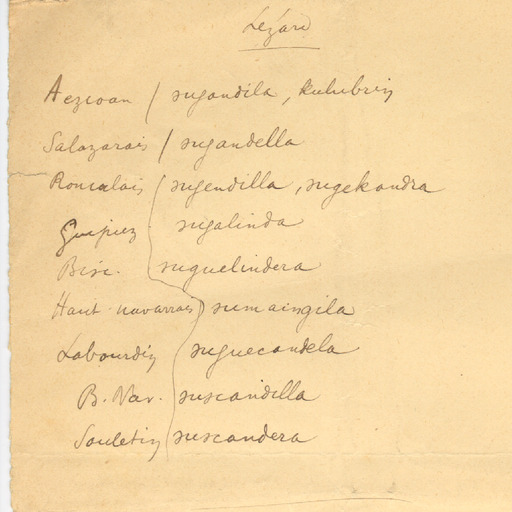 Lézard
Aezcoan / sugandila, kulubriz
Salazarais / sugandella
Roncalais / sugendilla, sugekandra
Guipuz. sugalinda
Bisc. suguelindera
Haut-navarrais sumaingila
Labourdin suguecandela
B. Nav. suscandilla
Souletin suscandera